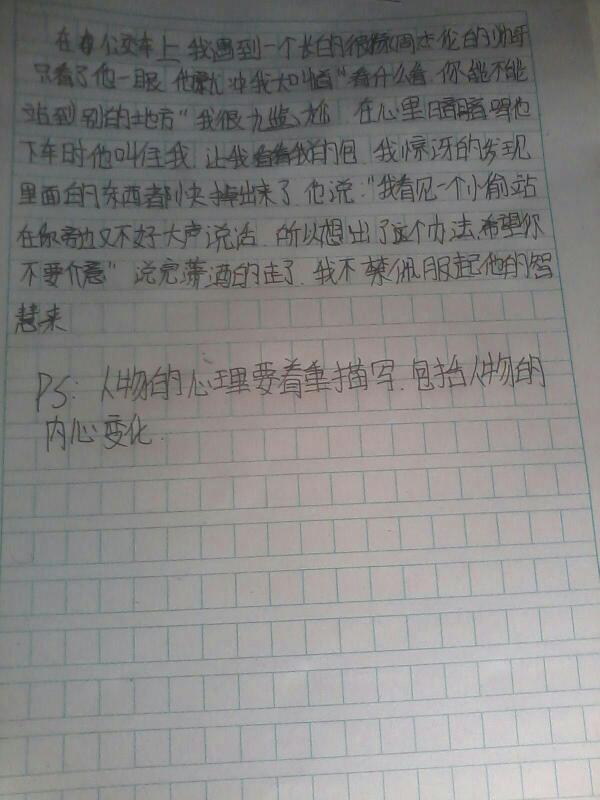 在公交车上 我遇到一个长的很像周杰伦的帅哥
只看了他一眼 他就冲我大叫道"看什么看.你能不能
站到别的地方"我很尴尬 在心里暗暗骂他
下车时他叫住我.让我看看我的包.我惊讶的发现
里面的东西都快掉出来了.他说:"我看见一个小偷站
在你旁边又不好大声说话.所以想出了这个办法.希望你
不要介意"说完潇洒的走了.我不禁佩服起他的智
慧来
PS: 人物的心理要着重描写.包括人物的
内心变化.